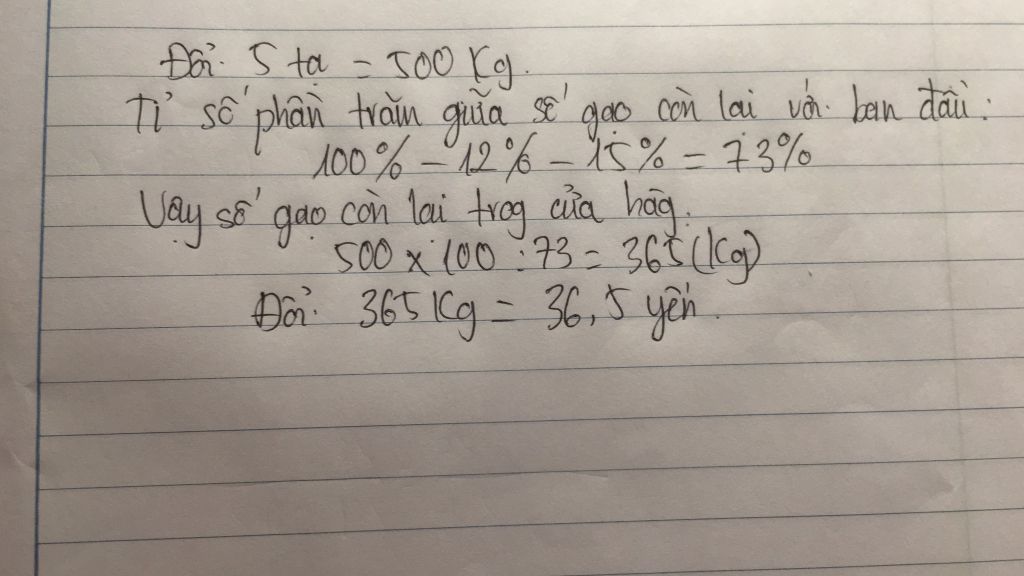 Đổi: 5 tạ = 500 Kg.
Tỉ số phần trăm giữa số gạo còn lại với ban đầu:
100% - 12% - 15% = 73%
Vậy số gạo còn lại trog cửa hàg.
500 x 100 : 73 = 365 (Kg)
Đổi: 365 Kg = 36,5 yến.